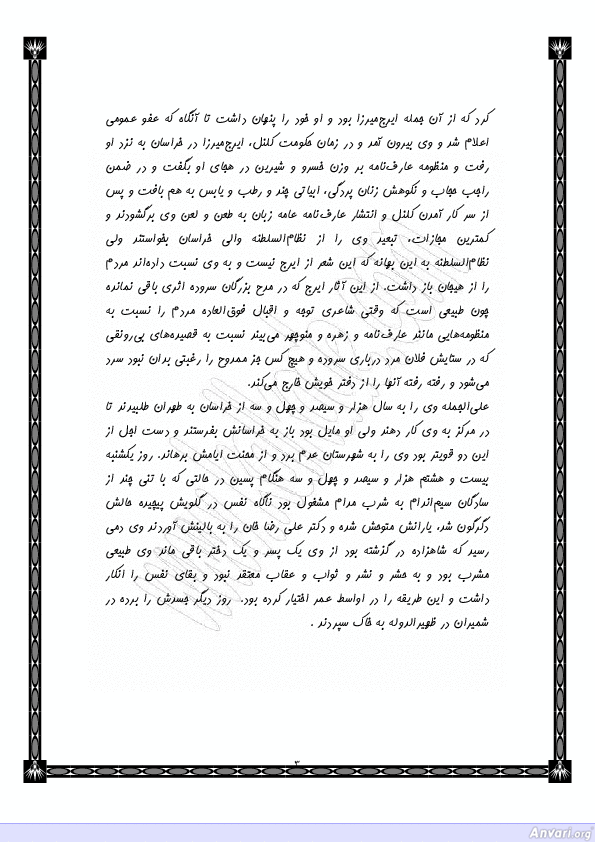 کرد که از آن جمله ایرج‌میرزا بود و او خود را پنهان داشت تا آنگاه که عفو عمومی
اعلام شد و وی بیرون آمد و در زمان حکومت کلنل، ایرج‌میرزا در خراسان به نزد او
رفت و منظومه عارف‌نامه بر وزن خسرو و شیرین در هجای او بگفت و در ضمن
راجب حجاب و نکوهش زنان پردگی، ابیاتی چند و رطب و یابس به هم بافت و پس
از سر کار آمدن کلنل و انتشار عارف‌نامه عامه زبان به طعن و لعن وی برگشودند و
کمترین مجازات، تبعید وی را از نظام‌السلطنه والی خراسان بخواستند ولی
نظام‌السلطنه به این بهانه که این شعر از ایرج نیست و به وی نسبت داده‌اند مردم
را از هیجان باز داشت. از این آثار ایرج که در مدح بزرگان سروده اثری باقی نمانده
چون طبیعی است که وقتی شاعری توجه و اقبال فوق‌العاده مردم را نسبت به
منظومه‌هایی مانند عارف‌نامه و زهره و منوچهر می‌بیند نسبت به قصیده‌های بی‌رونقی
که در ستایش فلان مرد درباری سروده و هیچ کس جز ممدوح را رغبتی بدان نبود سرد
می‌شود و رفته رفته آنها را از دفتر خویش خارج می‌کند.
علی‌الجمله وی را به سال هزار و سیصد و چهل و سه از خراسان به طهران طلبیدند تا
در مرکز به وی کار دهند ولی او مایل بود باز به خراسانش بفرستند و دست اجل از
این دو قویتر بود وی را به شهرستان عدم برد و از محنت ایامش برهاند. روز یکشنبه
بیست و هشتم هزار و سیصد و چهل و سه هنگام پسین در حالتی که با تنی چند از
سادگان سیم‌اندام به شرب مدام مشغول بود ناگاه نفس در گلویش پیچیده حالش
دگرگون شد، یارانش متوحش شده و دکتر علی رضا خان را به بالینش آوردند وی دمی
رسید که شاهزاده در گذشته بود از وی یک پسر و یک دختر باقی ماند وی طبیعی
مشرب بود و به حشر و نشر و ثواب و عقاب معتقد نبود و بقای نفس را انکار
داشت و این طریقه را در اواسط عمر اختیار کرده بود. روز دیگر جسدش را برده در
شمیران در ظهیرالدوله به خاک سپردند .
۳
Anvari.org